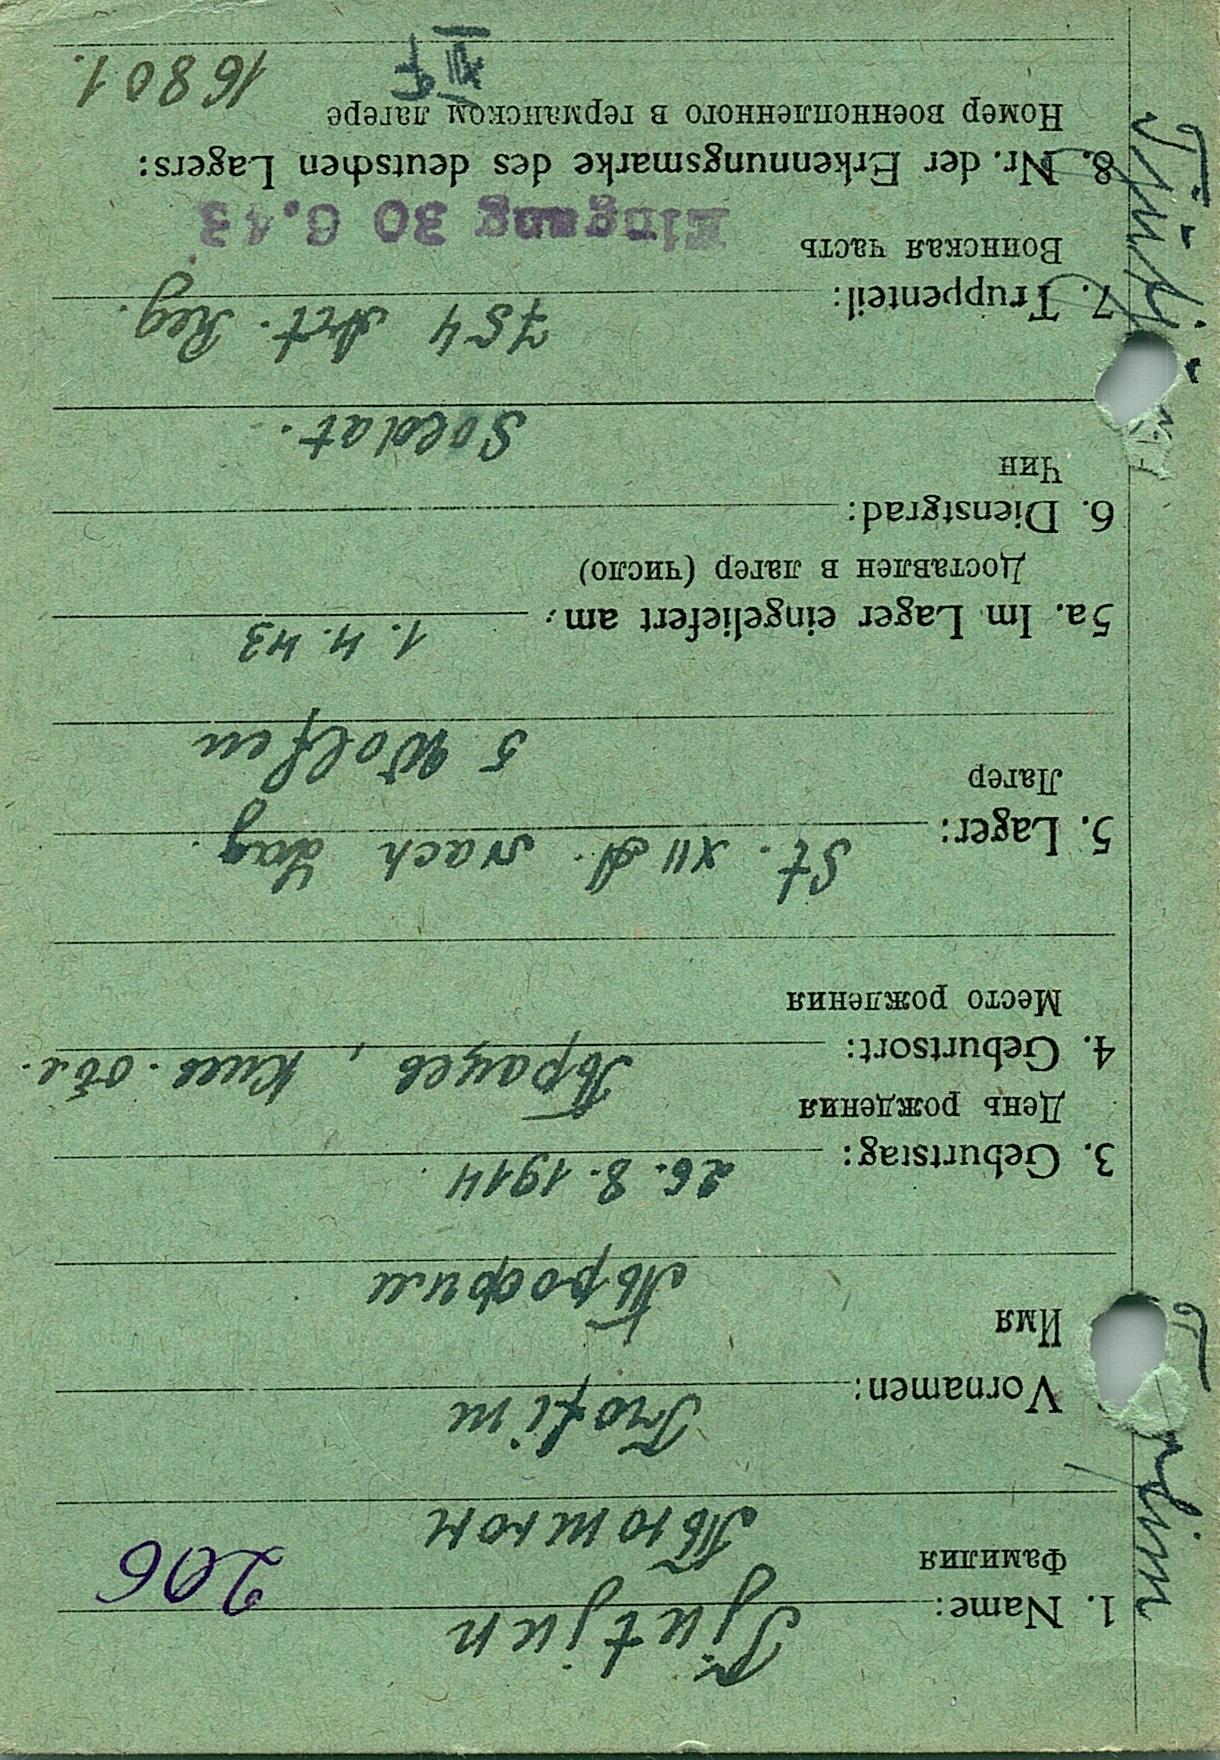 1. Name: Tjutjun
206
Фамилия Тютюн
Vornamen: Trofim
Имя Трофим
3. Geburtstag: 26. 8. 1914
День рождения
4. Geburtsort: Тращев, Киев. обл.
Место рождения
5. Lager: St. XII A. nach Lag.
Лагер 5 Wolfen
5a. Im Lager eingeliefert am: 1. 4. 43
Доставлен в лагер (число)
6. Dienstgrad:
Чин
Soldat.
7. Truppenteil: 754 Art. Reg.
Воинская часть
Eingang 30 6.43
8. Nr. der Erkennungsmarke des deutschen Lagers:
Номер военнопленного в германском лагере
XII F 16801.